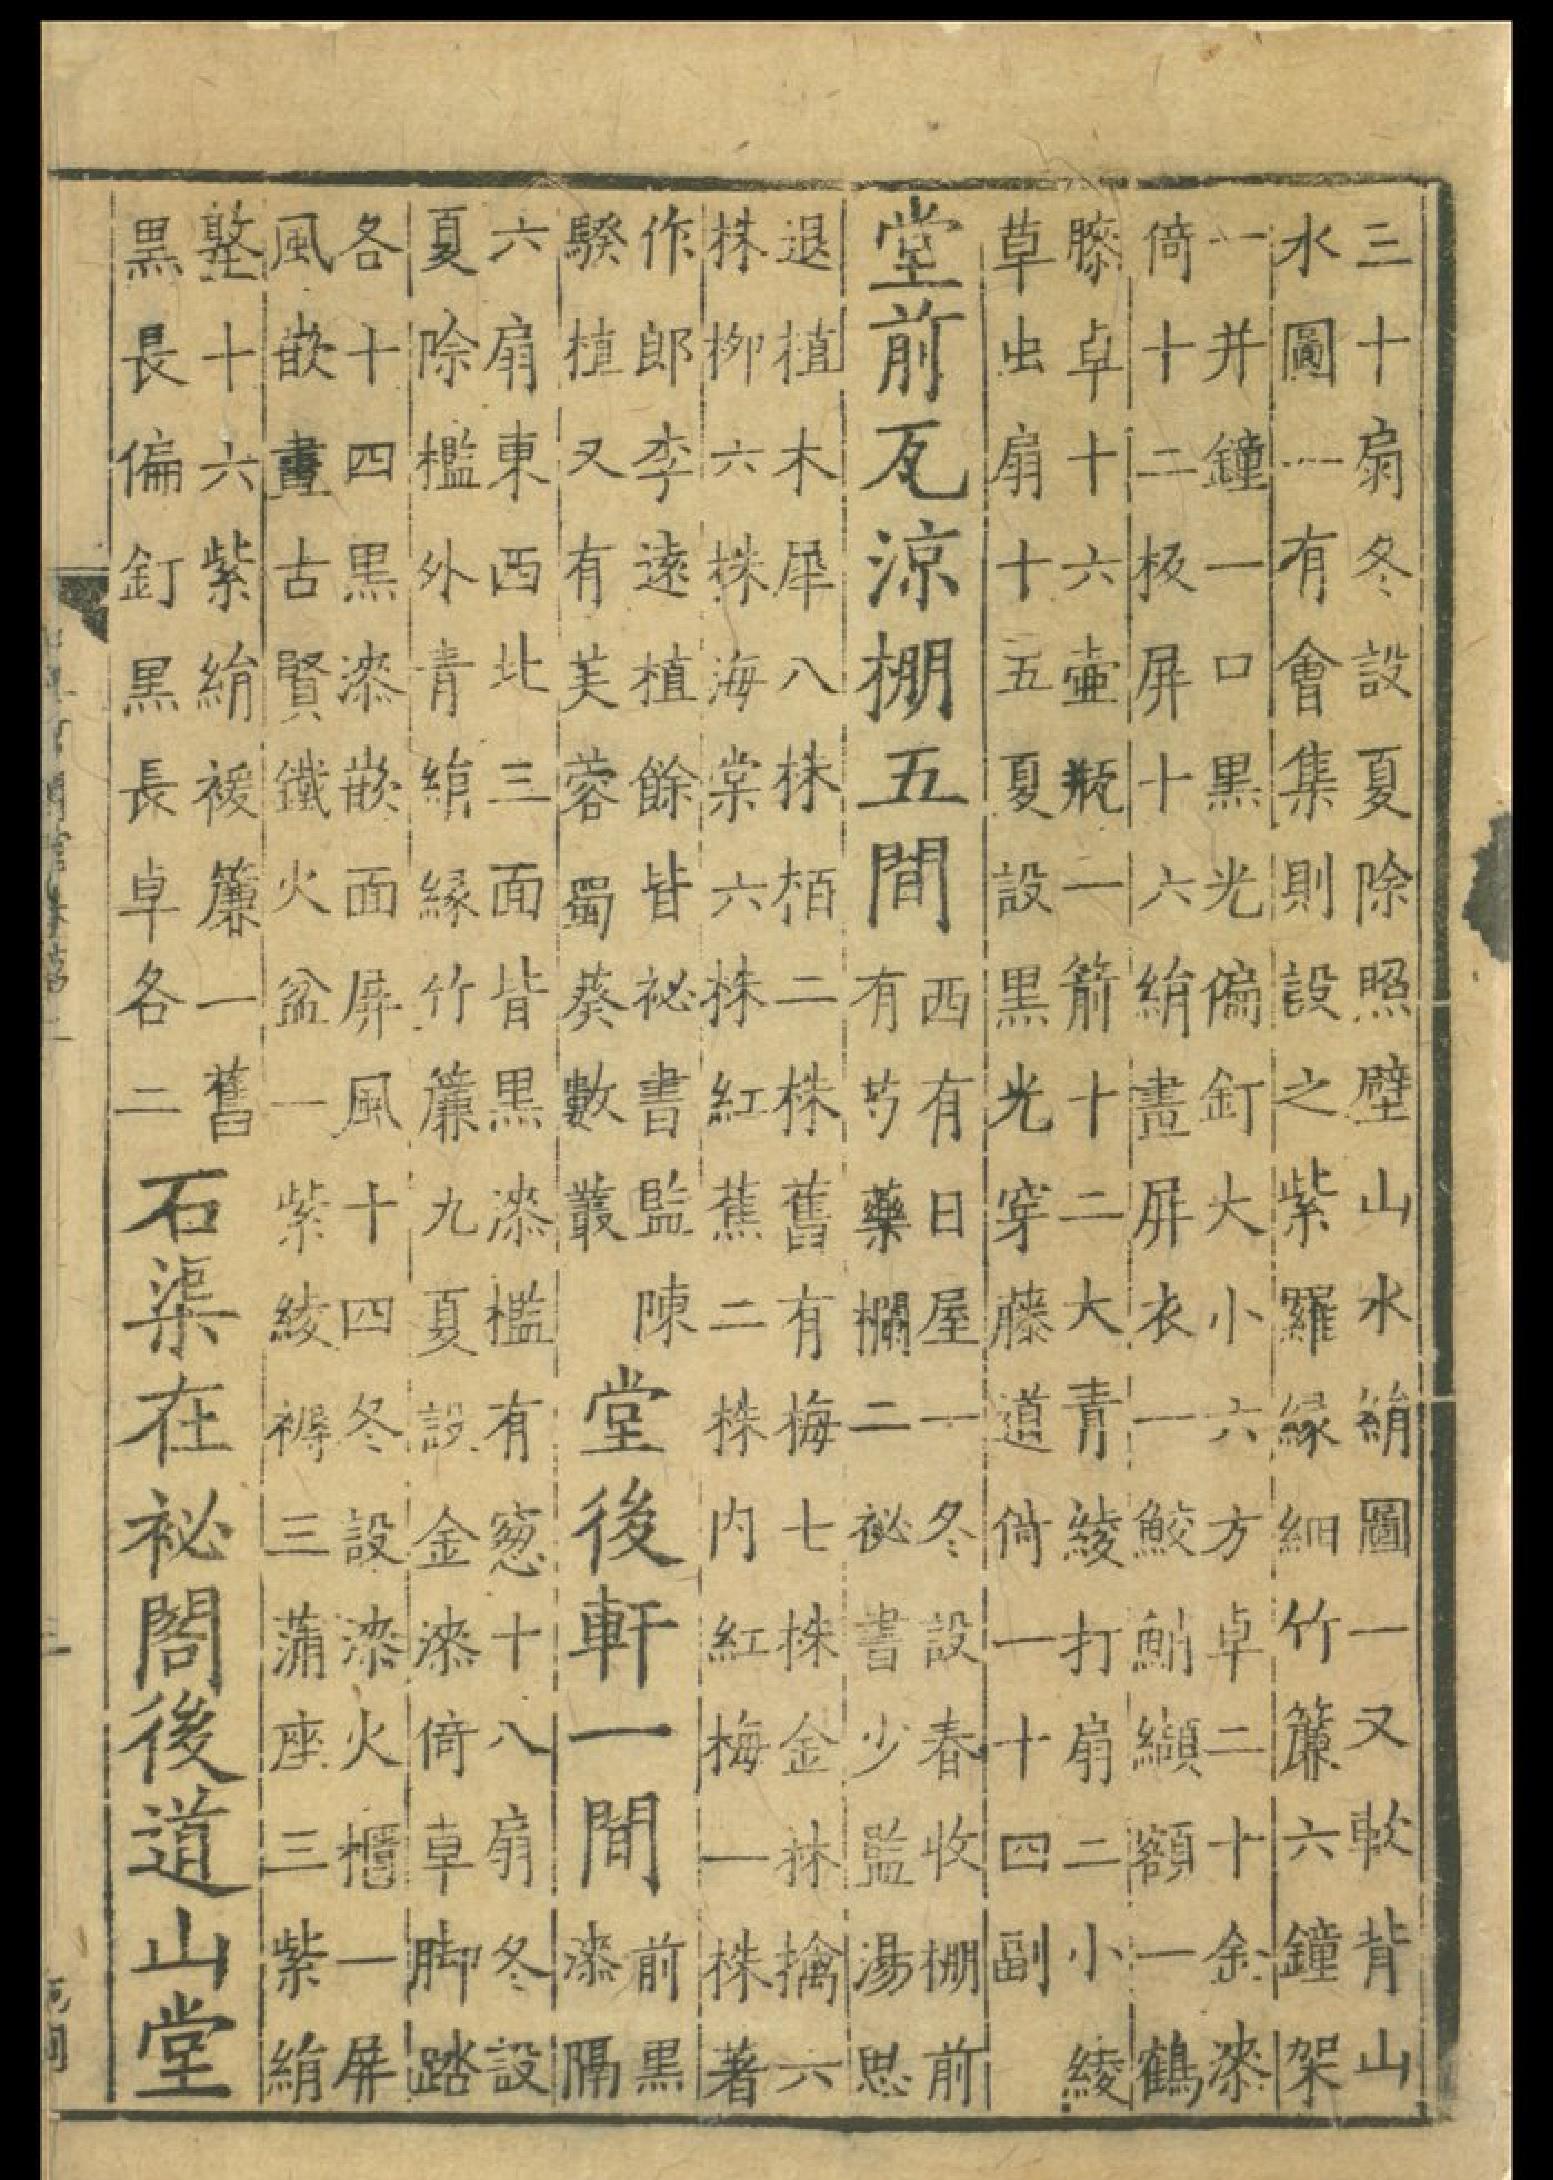 三十扇冬設夏除照壁山水絹圖一又軟背山
水圖一有會集則設之紫羅緣細竹簾六鐘架
一并鐘一口黑光偏釘大小六方卓二十金漆
倚十二板屏十六絹畫屏衣一鮫鮹纈額一鶴
膝卓十六壷瓶一箭十二大青綾打扇二小綾
草虫扇十五夏設黑光穿藤道倚一十四副
堂前瓦涼棚五間
西有日屋一冬設春收棚前
有芍藥欄二祕書少監湯思
退植木犀八株栢二株舊有梅七株金林擒六
株柳六株海棠六株紅蕉二株内紅梅一株著
作郎李遠植餘皆祕書監陳
騤植又有芙蓉蜀葵數叢
堂後軒一間
前黑
漆隔
六扇東西北三面皆黑漆檻有窓十八扇冬設
夏除檻外青絹緣竹簾九夏設金漆倚卓脚踏
各十四黑漆嵌面屏風十四冬設漆火櫃一屏
風嵌畫古賢鐵火盆一紫綾褥三蒲座三紫絹
墪十六紫絹褑簾一舊
黑長偏釘黑長卓各二
石渠在祕閣後道山堂